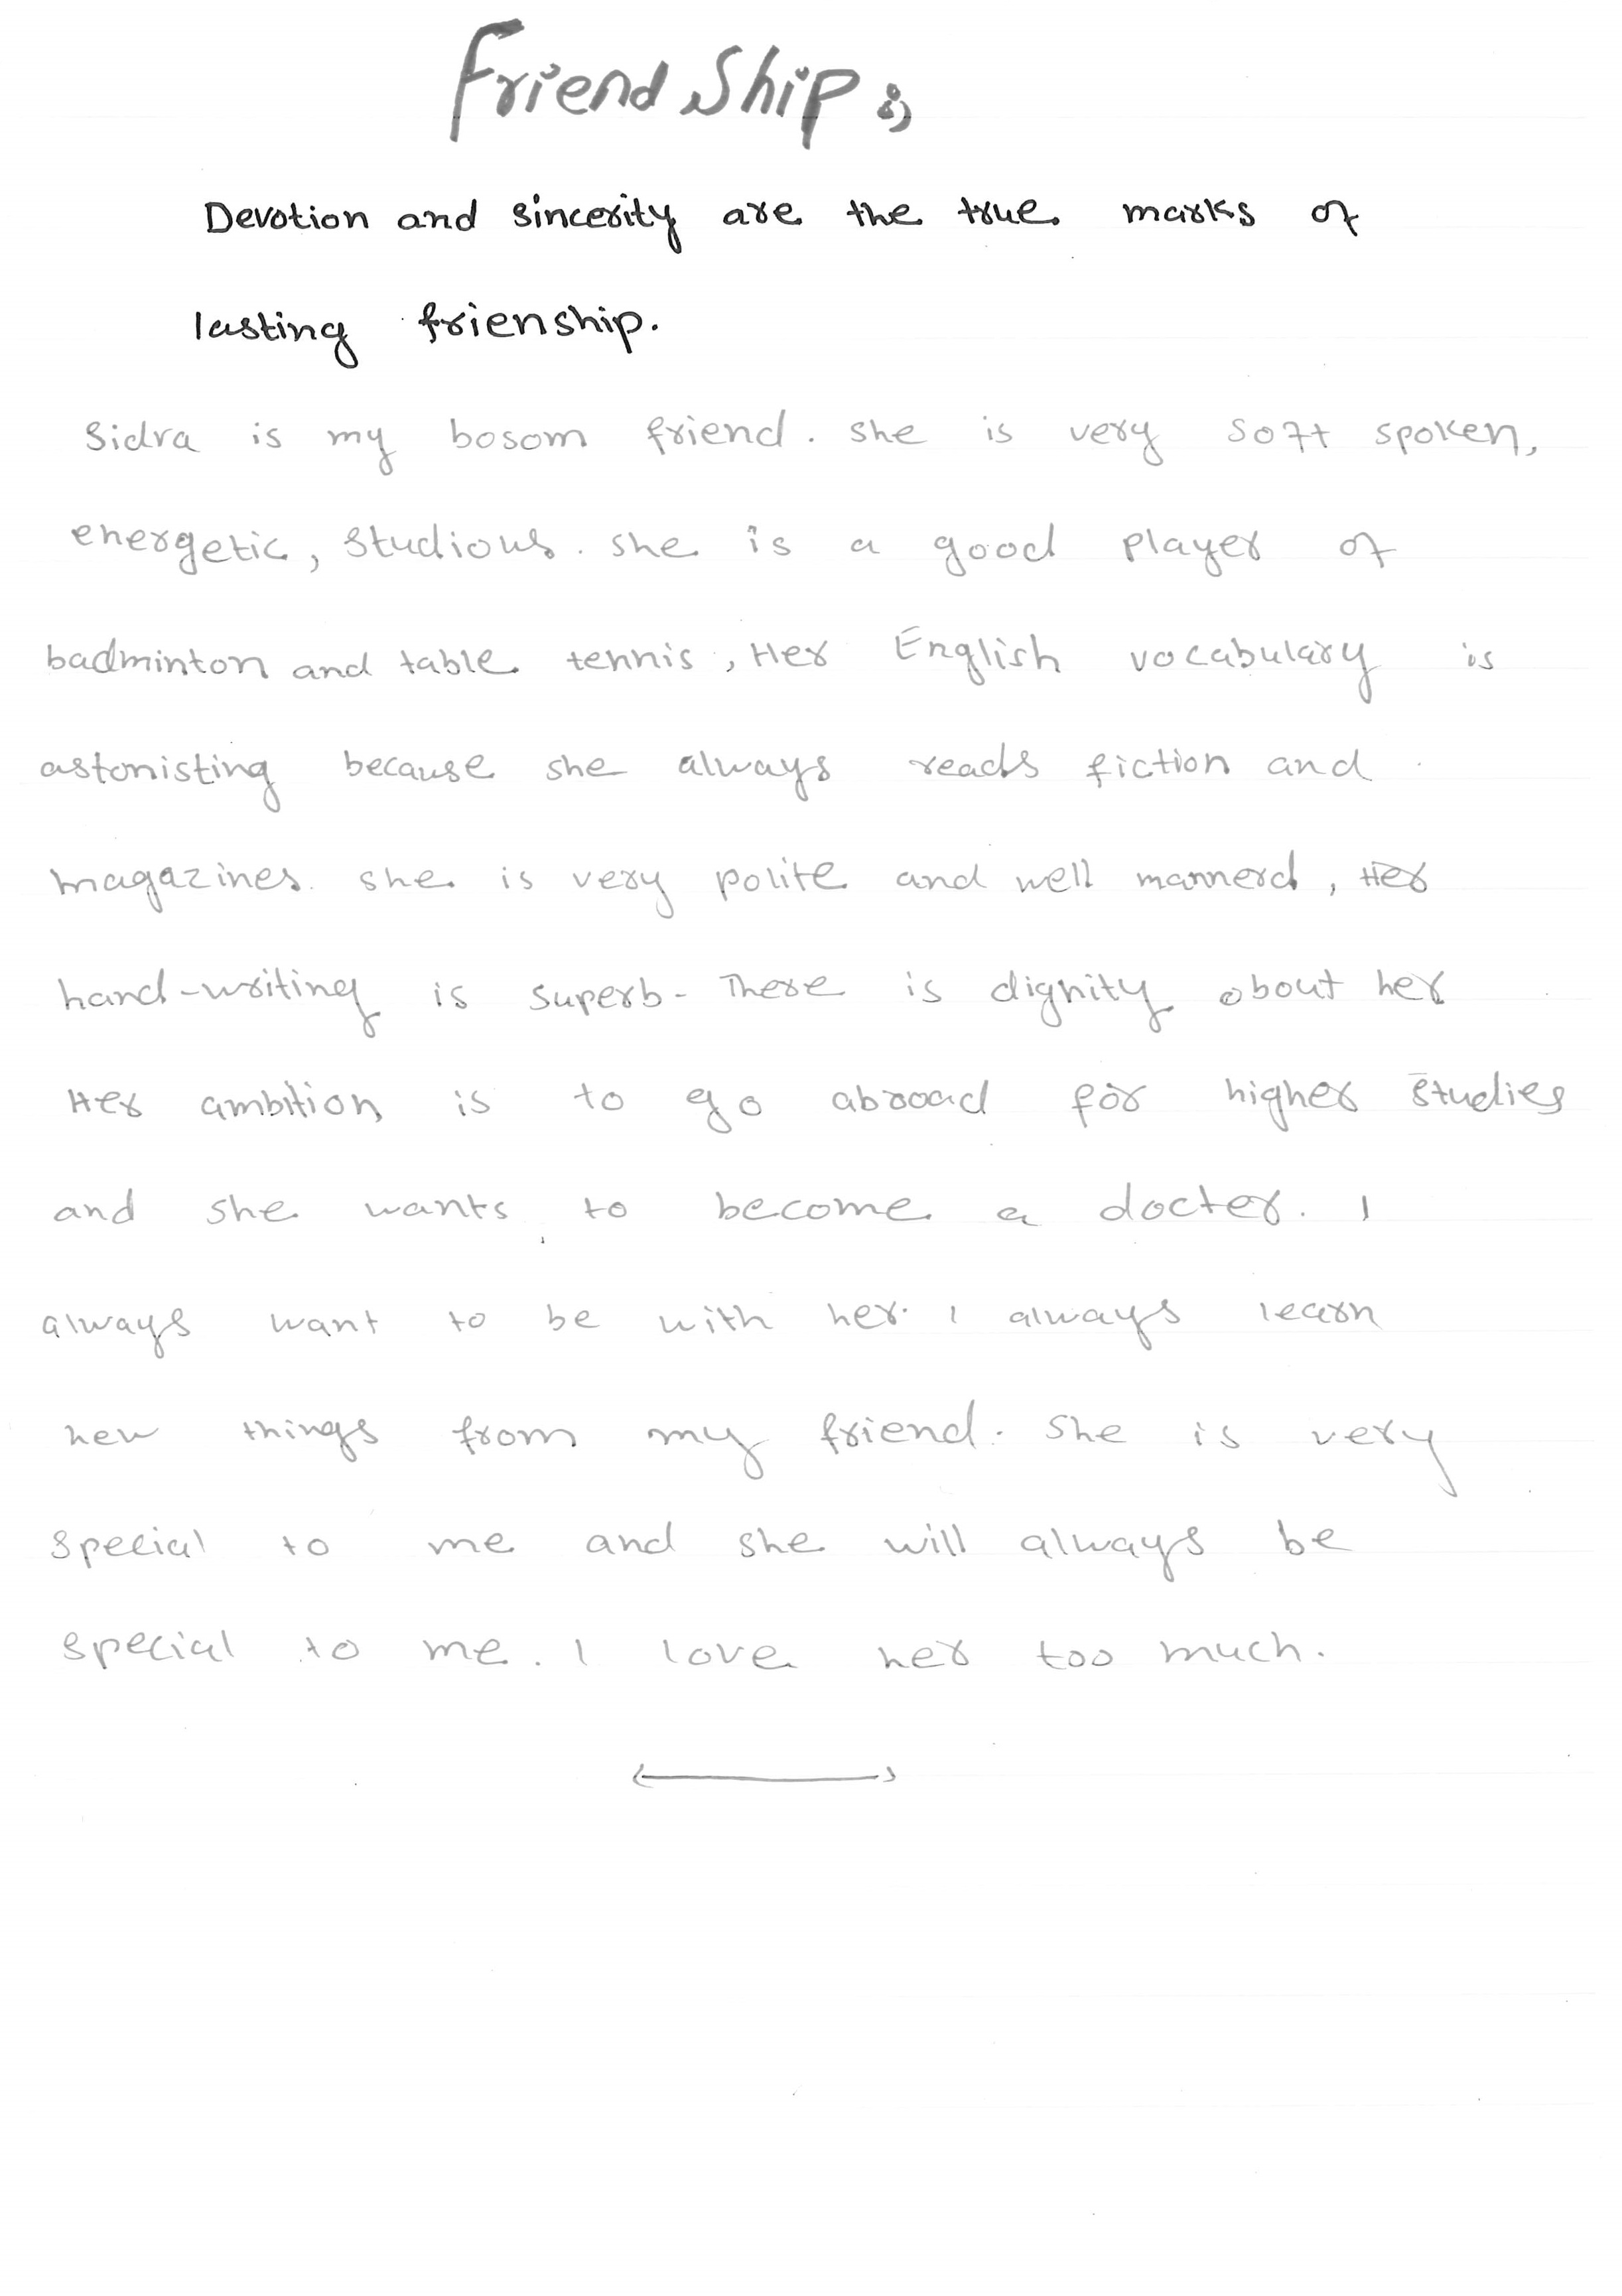 Friend Ship :,
Devotion and sincerity are the true marks of
lasting frienship.
Sidra is my bosom friend. she is very soft spoken,
energetic, studious. she is a good player of
badminton and table tennis, Her English vocabulary is
astonisting because she always reads fiction and
magazines. she is very polite and well mannerd, Her
hand-writing is superb- There is dignity about her
Her ambition is to go abroad for higher studies
and she wants to become a docter. I
always want to be with her. I always learn
new things from my friend. She is very
special to me and she will always be
special to me. I love her too much.